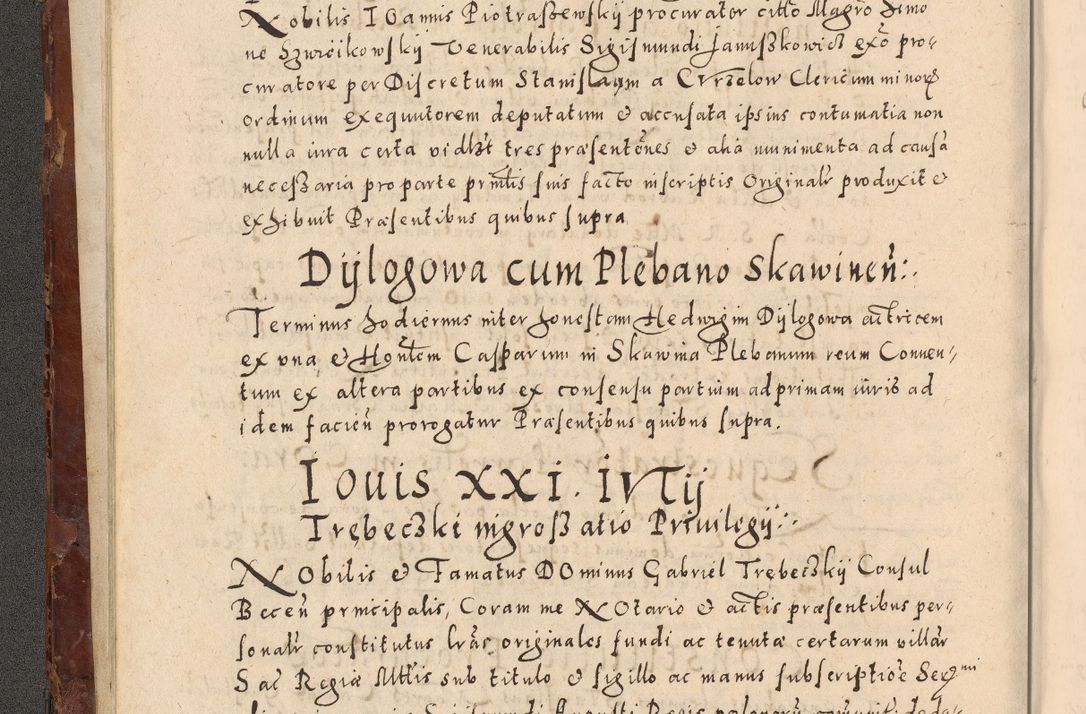 Nobilis Ioannis Piotraszewskÿ procurator citto Magro Simo
ne Szwiікowskÿ Venerabilis Sigismundi Januszkowicz exõ pro-
curatore per Discretum Stanislaum a Curzelow Clericum minorꝝ
ordinum exequutorem deputatum & accusata ipsius contumatia non
nulla iura certa vidlzt tres præsentõnes & alia munimenta ad causã
necessaria pro parte prnlis suis facto in scriptis Originalr produxit &
exhibuit Præsentibus quibus supra
Dÿlogowa cum Plebano Skawineñ:.
Terminus hodiernus inter honestam Hedwigim Dÿlogowa actricem
ex vna & Honlem Casparum in Skawina Plebanum reum Conuen-
tum ex altera partibus ex consensu partium ad primam iuris ad
idem facieñ prorogatur Præsentibus quibus supra.
Iouis XXI. Iulij
Trębeczki ingroszatio Priuilegÿ:.
Nobilis & Famatus DOminus Gabriel Trębeczkÿ Consul
Beceñ principalis, Coram me NOtario & actis præsentibus per-
sonalr constitutus lras originales fundi ac tenutæ certarum villar
Sac Regiæ Mttis sub titulo & sigillo ac manus subscriptiõe Serenmi